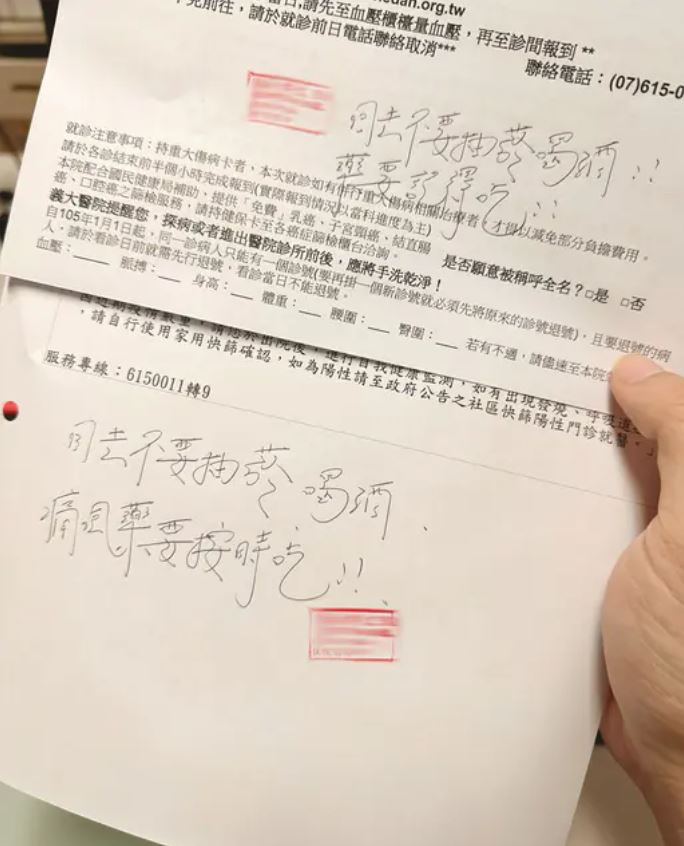 edah.org.tw
請先至血壓櫃檯量血壓，再至診間報到 **
前往，請於就診前日電話聯絡取消***
聯絡電話：(07)615-0
回去不要抽菸喝酒!!
藥要記得吃!!
就診注意事項：持重大傷病卡者，本次就診如有併行重大傷病相關治療者，才得以減免部分負擔費用。
請於各診結束前半個小時完成報到(實際報到情況以當科進度為主)
本院配合國民健康局補助、提供「免費」乳癌、子宮頸癌、結直腸
癌、口腔癌之篩檢服務，請持健保卡至各癌症篩檢櫃台洽詢。
是否願意被稱呼全名？□是 □否
義大醫院提醒您，探病或者進出醫院診所前後，應將手洗乾淨！
自105年1月1日起，同一診病人只能有一個診號(要再掛一個新診號就必須先將原來的診號退號)，且要退號的病
人，請於看診日前就需先行退號，看診當日不能退號。
血壓：____ 脈搏：____ 身高：____ 體重：____ 腰圍：____ 臀圍：____ 若有不適，請儘速至本院
進行自我健康監測，如有出現發燒、呼吸道
，請自行使用家用快篩確認，如為陽性請至政府公告之社區快篩陽性門診就醫。」
服務專線：6150011轉9
回去不要抽菸、喝酒.
痛風藥要按時吃!!